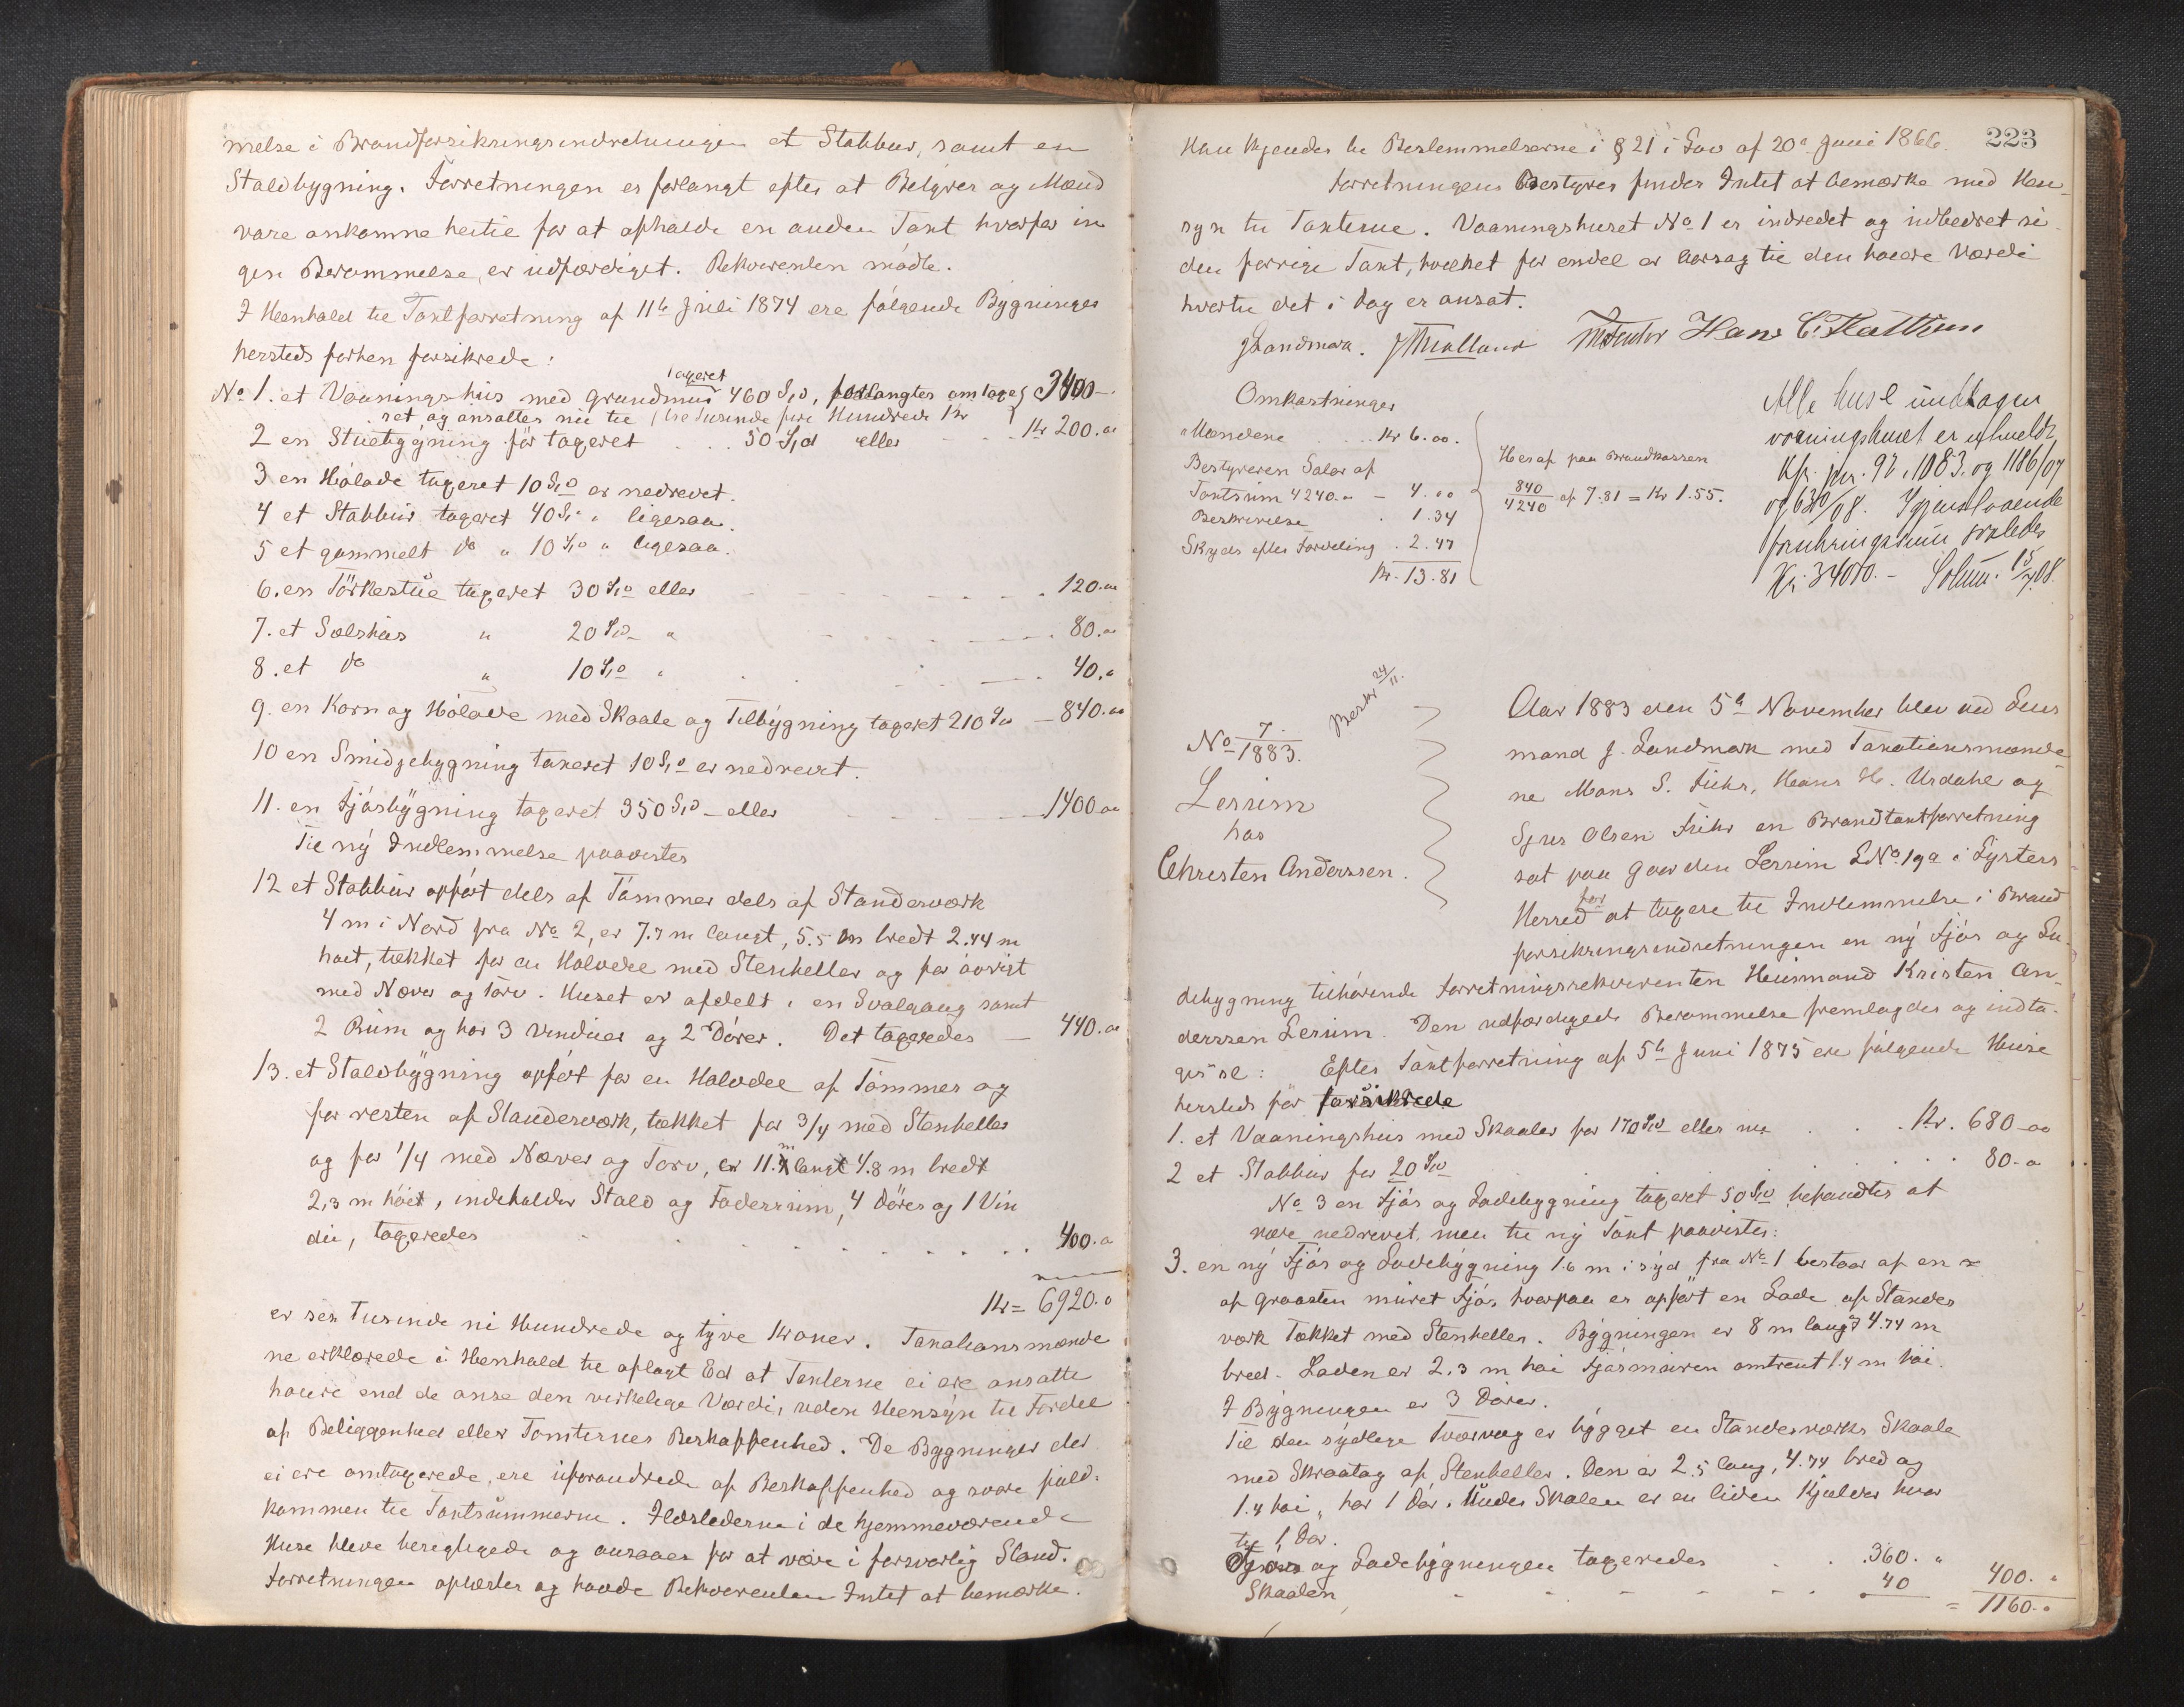 melse i Brandforsikringsindretningen et Stabbur, samt en
Staldbygning. Forretningen er forlangt efter at Betyrer og Mænd
vare ankomne hertil for at afholde en anden Taxt hvorfor in
gen Berammelse er udfærdiget. Rekvirenten mødte.
I Henhold til Taxtforretning af 11te Juli 1874 ere følgende Bygninger
hersteds forhen forsikrede:
No 1. et Vaaningshus med Grundmur taxeret 460 Spd, forlangtes omtaxe 3400 -
ret og ansattes nu til tre Tusinde fire Hundrede Kr
2 en Stuebygning før taxeret . . . 50 Spd eller . . . Kr 200.00
3 en Hølade taxeret 10 Spd er nedrevet.
4 et Stabbur taxeret 40 Spd " ligesaa.
5 et gammelt do " 10 Spd " ligesaa.
6. en Tørkestue taxeret 30 Spd eller . 120.00
7. et Sælshus " 20 Spd " 80.00
8. et do " 10 Spd " . . 40.00
9. en Korn og Hølade med Skaale og Tilbygning taxeret 210 Spd — 840.00
10 en Smidjebygning taxeret 10 Spd er nedrevet.
11. en Fjøsbygning taxeret 350 Spd — eller 1400.00
Til ny Indlemmelse paavistes
12 et Stabbur opført dels af Tømmer dels af Standerværk
4 m i Nord fra No 2, er 7.7 m langt, 5.5 m bredt 2.44 m
høit, tækket for en Halvdel med Stenheller og for øvrigt
med Næver og Torv. Huset er afdelt i en Svalgang samt
2 Rum og har 3 Vinduer og 2 Dører. Det taxeredes — 440.00
13. et Staldbygning opført for en Halvdel af Tømmer og
for resten af Standerværk, tækket for 3/4 med Stenheller
og for 1/4 med Næver og Torv, er 11. m langt 4.8 m bredt
2,3 m høit, indeholder Stald og Foderrum, 4 Dører og 1 Vin
du, taxeredes . . . . . . . 400.0
Kr = 6920.0
er sex Tusinde ni Hundrede og tyve Kroner. Taxationsmænde
ne erklærede i Henhold til aflagt Ed at Taxterne ei ere ansatte
høiere end de anse den virkelige Værdi, uden Hensyn til Fordel
af Beliggenhed eller Tomternes Beskaffenhed. De Bygninger der
ei ere omtaxerede, ere uforandrede af Beskaffenhed og svare fuld-
kommen til Taxtsummerne. Ildstederne i de hjemmeværende
Huse bleve besigtigede og ansaaes for at være i forsvarlig Stand.
Forretningen oplæstes og havde Rekvirenten Intet at bemærke.
223
Han kjender til Bestemmelserne i § 21 i Lov af 20de Juni 1866.
Forretningens Bestyrer finder Intet at bemærke med Hen-
syn til Taxterne. Vaaningshuset No 1 er indredet og udbedret si-
den forrige Taxt, hvilket for endel er Aarsag til den høiere Værdi
hvortil det i Dag er ansat.
J Landmark. Hans C.
Omkostninger
Mændene . . . Kr 6.00.
Bestyreren Salær af
Taxtsum 4240.0 — 4.00
Beskrivelse . 1.34
Skyds efter Fordeling . 2.47
Kr. 13.81
Heraf paa Brandkassen
840/4240 af 7.81 = Kr 1.55.
Alle huse undtagen
vaaningshuset er udmeldt
Kfr. jnr. 92, 1083. og 1186/07
og 630/08. Igjenstaaende
forsikringssum saaledes
Kr. 3400. - Solum. 15/7 08.
Beskr 24/11.
No 7/1883.
Lerum
hos
Christen Anderssen.
Aar 1883 den 5te November blev ved Lens
mand J. Landmark med Taxationsmænde-
ne Mons S. Fuhr, Hans H. Urdahl og
Sjur Olsen Fuhr en Brandtaxtforretning
sat paa Gaarden Lerum LNo 19a i Lysters
Herred for at taxere til Indlemmelse i Brand
forsikringsindretningen en ny Fjøs og La-
debygning tilhørende Forretningsrekvirenten Husmand Kristen An-
derssen Lerum. Den udfærdigede Berammelse fremlagdes og indta-
ges sl: Efter Taxtforretning af 5te Juni 1875 ere følgende Huse
hersteds før forsikrede
1. et Vaaningshus med Skaaler for 170 Spd eller nu . . . Kr. 680-00
2 et Stabbur for 20 Spd . . . . . 80-0
No 3 en Fjøs og Ladebygning taxeret 50 Spd befandtes at
være nedrevet, men til ny Taxt paavistes:
3. en ny Fjøs og Ladebygning 16 m i syd fra No 1 bestaar af en
af Graasten muret Fjøs, hvorpaa er opført en Lade af Stander
værk Tækket med Stenheller. Bygningen er 8 m lang 4.74 m
bred - Laden er 2.3 m høi Fjøsmuren omtrent 1.4 m høi.
I Bygningen er 3 Dører.
Til den sydlige Tværvæg er bygget en Standerværks Skaale
med Skraatag af Stenheller. Den er 2.5 lang, 4.74 bred og
1.4 høi, har 1 Dør. Under Skalen er en liden Kjelder hvor
til 1 Dør.
Fjøs og Ladebygningen taxeredes . . . 360. "
Skaalen . . . 40 400. "
= 1160.0